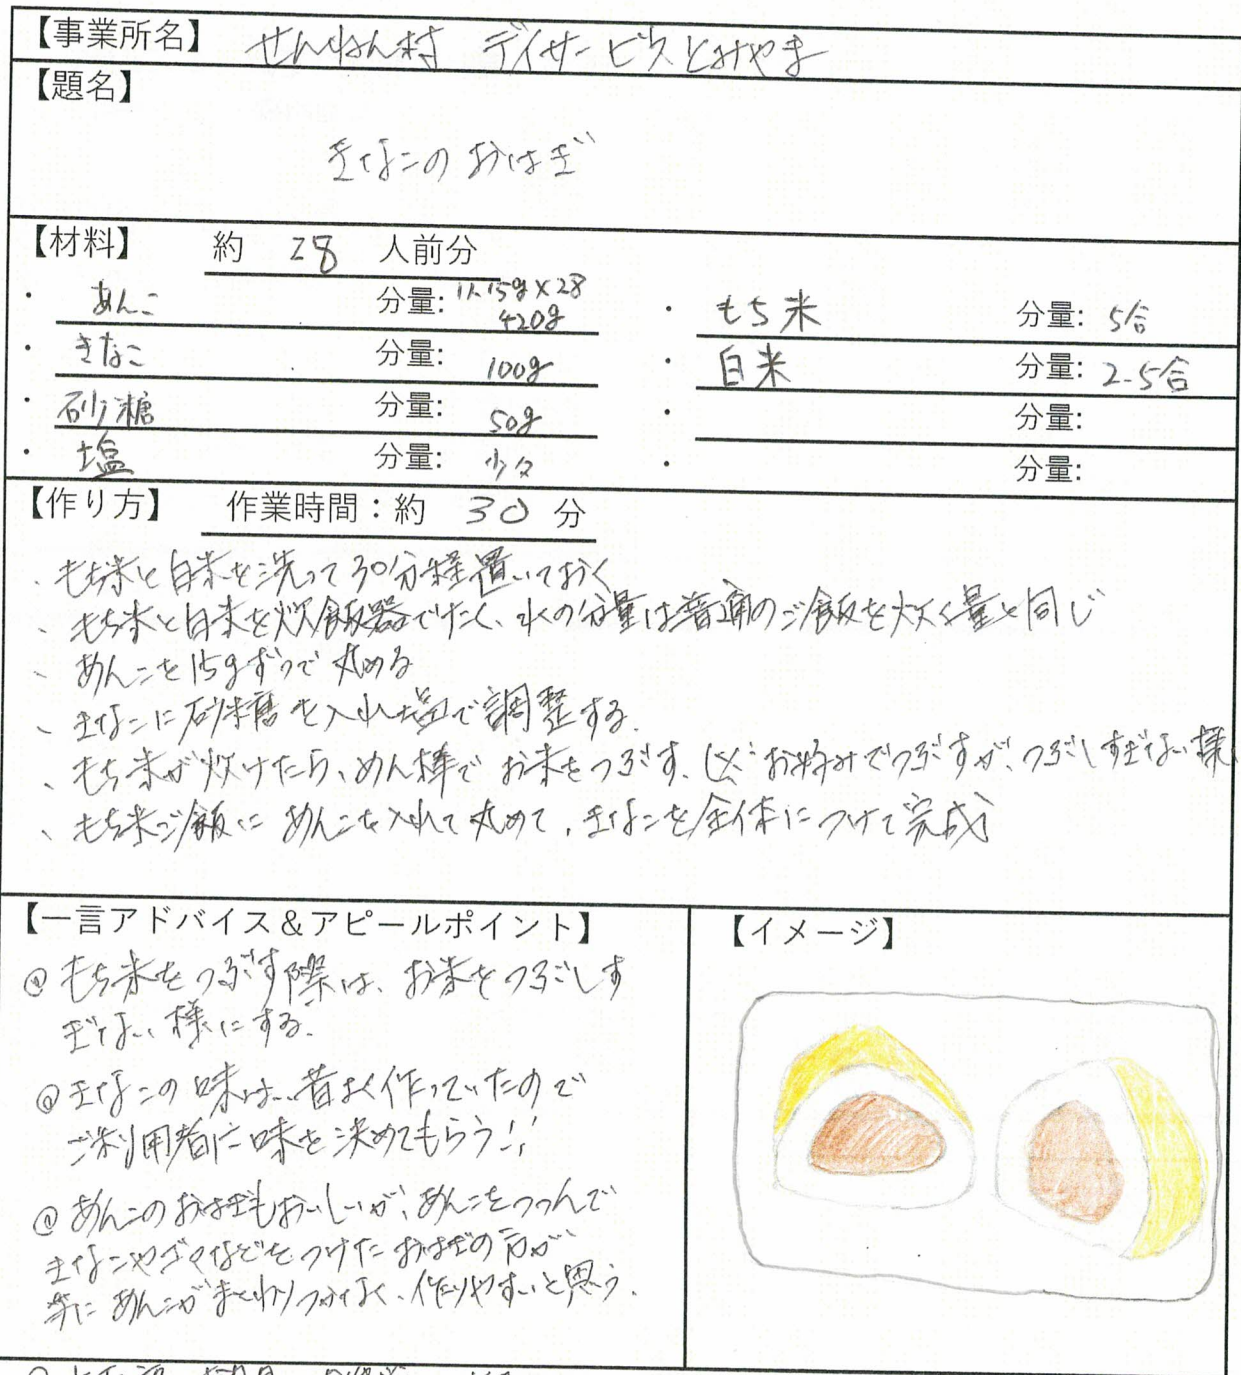 【事業所名】 せんねん村 デイサービスとみやま
【題名】
きなこのおはぎ
【材料】 約 28 人前分
・ あんこ 分量: 1人15g×28 420g ・ もち米 分量: 5合
・ きなこ 分量: 100g ・ 白米 分量: 2.5合
・ 砂糖 分量: 50g ・ 分量:
・ 塩 分量: 少々 ・ 分量:
【作り方】 作業時間：約 30 分
、もち米と白米を洗って30分程置いておく
、もち米と白米を炊飯器でたく、水の分量は普通のご飯を炊く量と同じ
、あんこを15gずつで丸める
、きなこに砂糖を入れ塩で調整する。
、もち米が炊けたら、めん棒でお米をつぶす。 お好みでつぶすが、つぶしすぎない様
、もち米ご飯にあんこを入れて丸めて、きなこを全体につけて完成
【一言アドバイス＆アピールポイント】
◎もち米をつぶす際は、お米をつぶしす
ぎない様にする。
◎きなこの味は、昔よく作っていたので
ご利用者に味を決めてもらう!!
◎あんこのおはぎもおいしいが、あんこをつつんで
きなこやゴマなどをつけたおはぎの方が
手にあんこがまとわりつかなく、作りやすいと思う。
【イメージ】